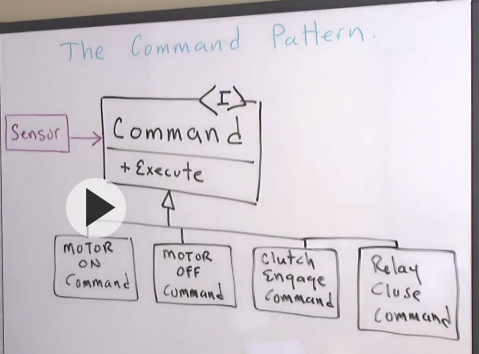 The Command Pattern.
<I>
Sensor
Command
+ Execute
MOTOR
ON
Command
MOTOR
OFF
Command
Clutch
Engage
Command
Relay
Close
Command